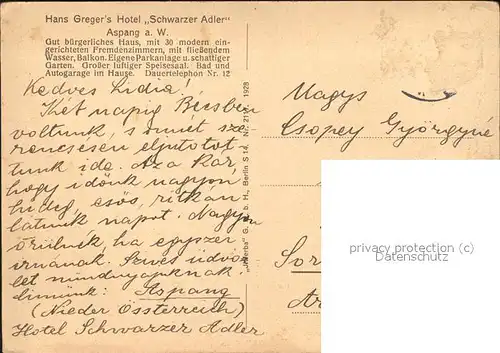 Hans Greger's Hotel „Schwarzer Adler"
Aspang a. W.
Gut bürgerliches Haus, mit 30 modern ein-
gerichteten Fremdenzimmern, mit fließendem
Wasser, Balkon. Eigene Parkanlage u. schattiger
Garten. Großer luftiger Speisesaal. Bad und
Autogarage im Hause. Dauertelephon Nr. 12
Kedves Lidia!
Két napig Bécsben
voltunk, s ismét sze-
rencsésen eljutot-
tunk ide. Az a kár
hogy időnk nagyon
hideg, esős, ritkán
látunk napot. Nagyon
örülnék, ha egyszer
irnának. Szives üdvöz-
let mindnyájuknak
címünk: Aspang
(Nieder Össterreich)
Hotel Schwarzer Adler
G. m. b. H., Berlin S 14. Nr. 1928
Nagys
Csopey Györgyné
privacy protection
www.ansichtskarten-center.de
Sor